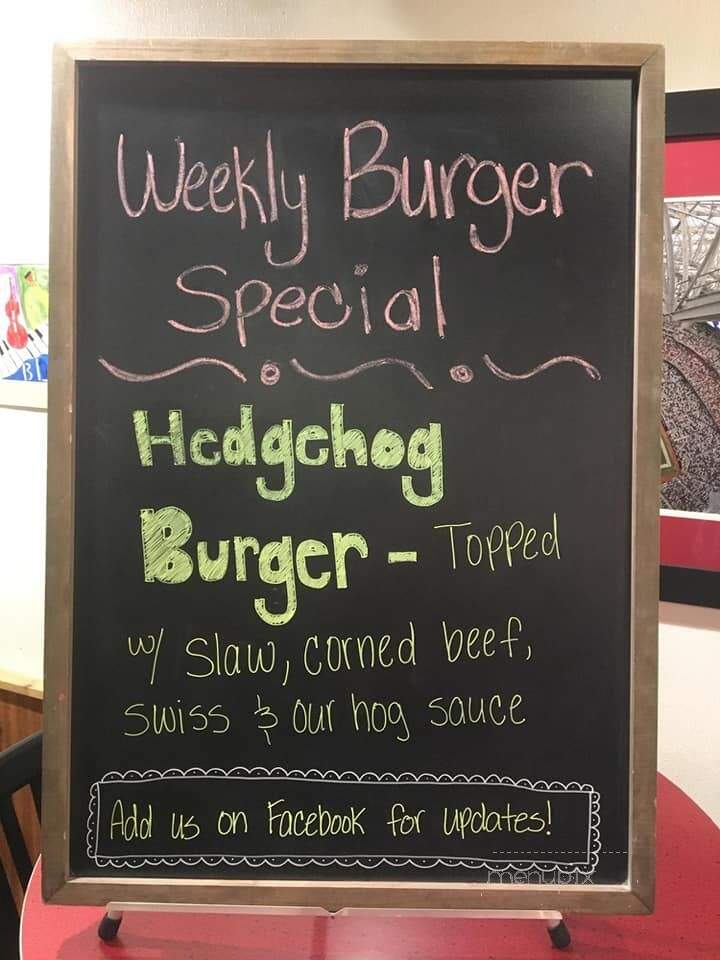 Weekly Burger
Special
Hedgehog
Burger - Topped
w/ slaw, corned beef,
swiss & our hog sauce
Add us on Facebook for updates!
menupix
B